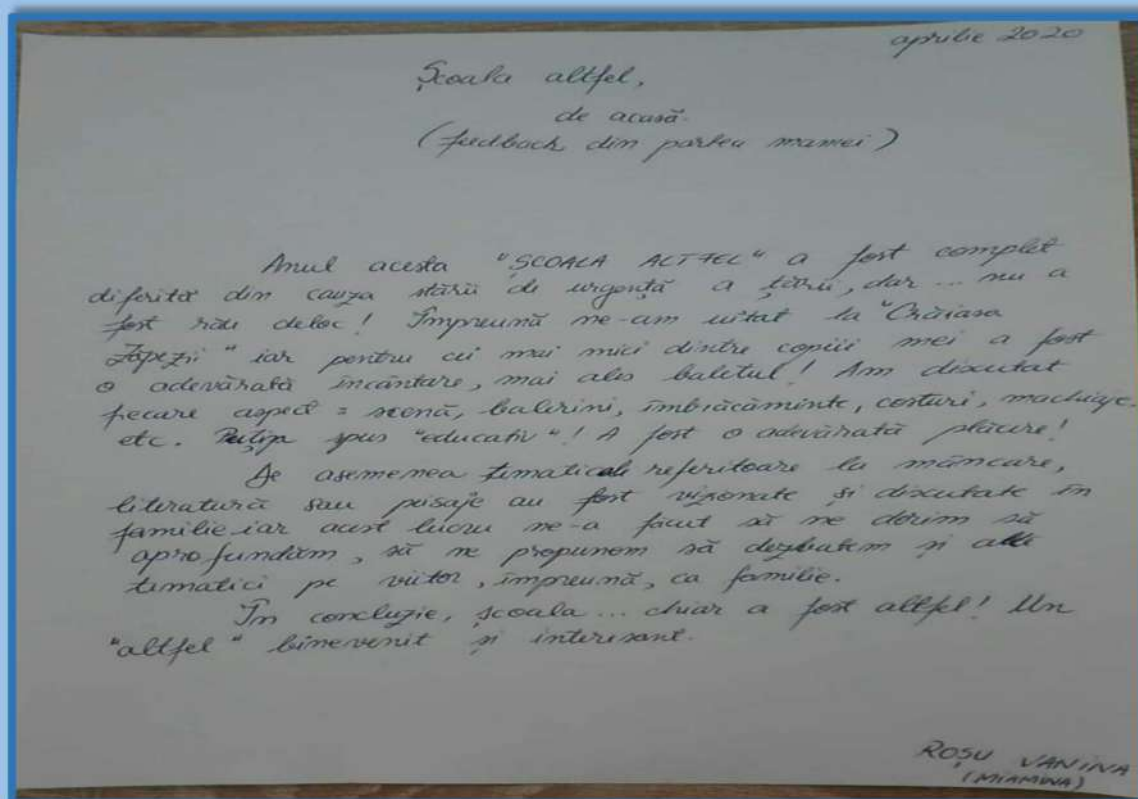 aprilie 2020
Școala altfel,
de acasă.
(feedback din partea mamei)
Anul acesta "ȘCOALA ALTFEL" a fost complet
diferită din cauza stării de urgență a țării, dar... nu a
fost rău deloc! Împreună ne-am uitat la "Crăiasa
Zăpezii" iar pentru cei mai mici dintre copiii mei a fost
o adevărată încântare, mai ales baletul! Am discutat
fiecare aspect = scenă, balerini, îmbrăcăminte, costuri, machiaje.
etc. Puțin spus "educativ"! A fost o adevărată plăcere!
De asemenea tematicale referitoare la mâncare,
literatură sau peisaje au fost vizionate și discutate în
familie iar acest lucru ne-a făcut să ne dorim să
aprofundăm, să ne propunem să dezbatem și alte
tematici pe viitor, împreună, ca familie.
În concluzie, școala... chiar a fost altfel! Un
"altfel" binevenit și interesant.
ROȘU VANINA